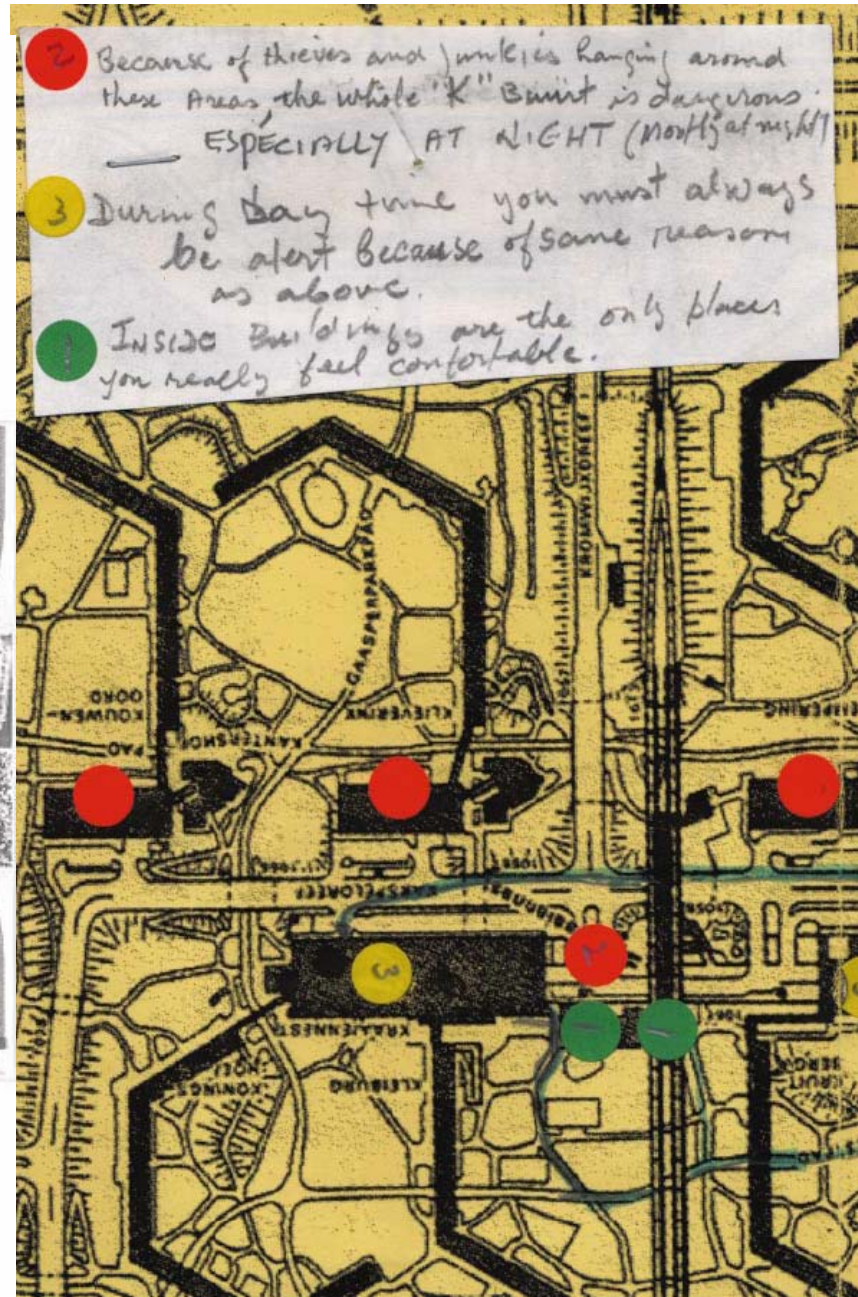 2 Because of thieves and junkies hanging around
these Areas, the whole "K" Buurt is dangerous.
ESPECIALLY AT NIGHT (Mostly at night)
3 During Day time you must always
be alert Because of same reason
as above.
1 INSIDE Buildings are the only places
you really feel confortable.
KROMWIJKDREEF
GAASPERPARKPAD
KOUWEN-
OORD
KLIEVERINK
KANTERSHOF
PAD
KARSPELDREEF
2
3
1
1
KRAAIENNEST
KONINGS
HOEF
KLEIBURG
KRUIT
BERG